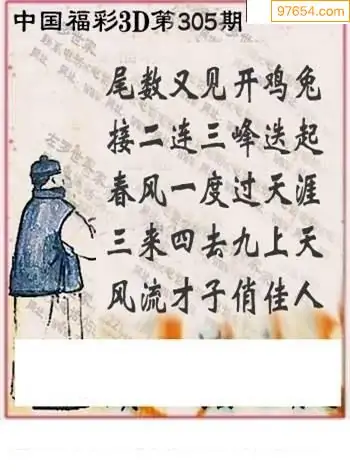 97654.com
中国福彩3D第305期
尾数又见开鸡兔
接二连三峰迭起
春风一度过天涯
三来四去九上天
风流才子俏佳人